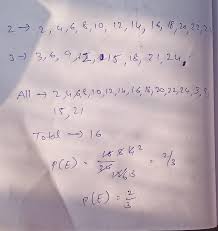 2 → 2, 4, 6, 8, 10, 12, 14, 16, 18, 20, 22, 2
3 → 3, 6, 9, 12, 15, 18, 21, 24,
All → 2, 4, 6, 8, 10, 12, 14, 16, 18, 20, 22, 24, 3, 9
15, 21
Total → 16
P(E) = 16 / = 2/3
P(E) = 2/3